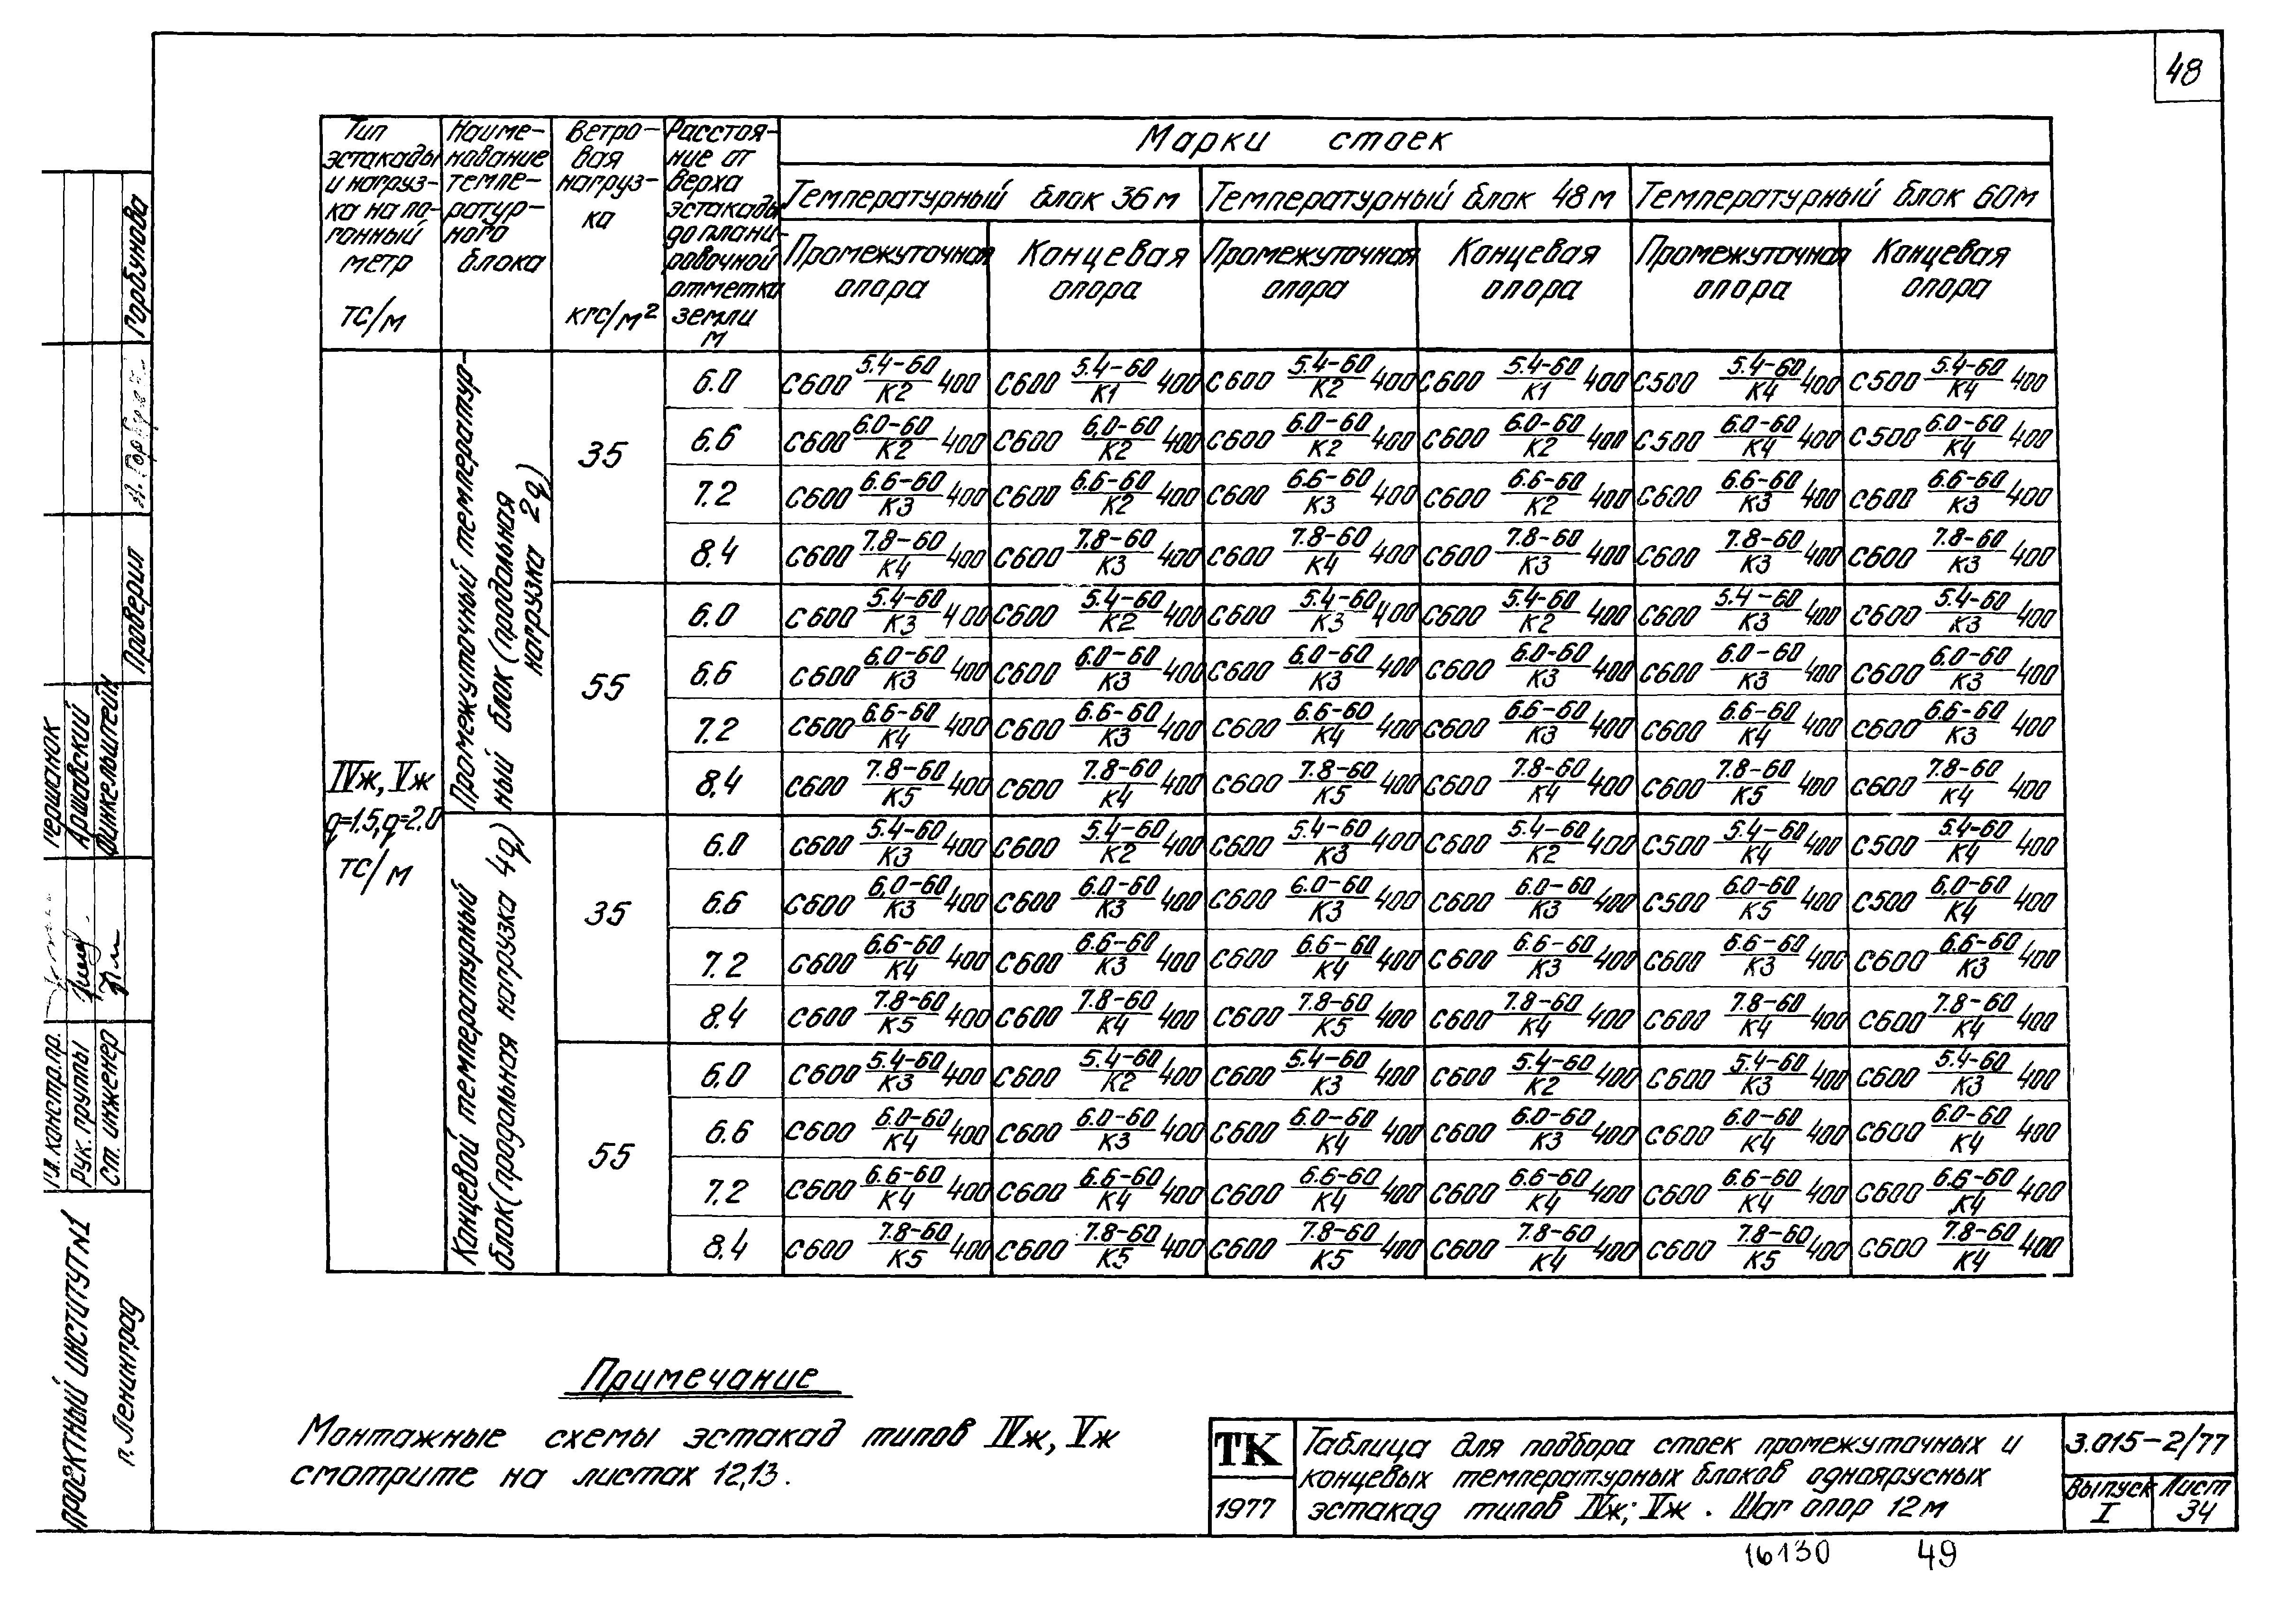 48
Тип эстакады и нагруз-ка на по-гонный метр тс/м
Наиме-нование темпе-ратур-ного блока
Ветро-вая нагруз-ка кгс/м²
Расстоя-ние от верха эстакады до плани-ровочной отметки земли м
Марки стоек
Температурный блок 36м Температурный блок 48м Температурный блок 60м
Промежуточная опора Концевая опора Промежуточная опора Концевая опора Промежуточная опора Концевая опора
IVж, Vж
q=1.5, q=2.0
тс/м
Промежуточный температур-ный блок (продольная нагрузка 2q)
35
6.0 С600 5.4-60/К2 400 С600 5.4-60/К1 400 С600 5.4-60/К2 400 С600 5.4-60/К1 400 С500 5.4-60/К4 400 С500 5.4-60/К4 400
6.6 С600 6.0-60/К2 400 С600 6.0-60/К2 400 С600 6.0-60/К2 400 С600 6.0-60/К2 400 С500 6.0-60/К4 400 С500 6.0-60/К4 400
7.2 С600 6.6-60/К3 400 С600 6.6-60/К2 400 С600 6.6-60/К3 400 С600 6.6-60/К2 400 С600 6.6-60/К3 400 С600 6.6-60/К3 400
8.4 С600 7.8-60/К4 400 С600 7.8-60/К3 400 С600 7.8-60/К4 400 С600 7.8-60/К3 400 С600 7.8-60/К3 400 С600 7.8-60/К3 400
55
6.0 С600 5.4-60/К3 400 С600 5.4-60/К2 400 С600 5.4-60/К3 400 С600 5.4-60/К2 400 С600 5.4-60/К3 400 С600 5.4-60/К3 400
6.6 С600 6.0-60/К3 400 С600 6.0-60/К3 400 С600 6.0-60/К3 400 С600 6.0-60/К3 400 С600 6.0-60/К3 400 С600 6.0-60/К3 400
7.2 С600 6.6-60/К4 400 С600 6.6-60/К3 400 С600 6.6-60/К4 400 С600 6.6-60/К3 400 С600 6.6-60/К4 400 С600 6.6-60/К3 400
8.4 С600 7.8-60/К5 400 С600 7.8-60/К4 400 С600 7.8-60/К5 400 С600 7.8-60/К4 400 С600 7.8-60/К5 400 С600 7.8-60/К4 400
Концевой температурный блок (продольная нагрузка 4q)
35
6.0 С600 5.4-60/К3 400 С600 5.4-60/К2 400 С600 5.4-60/К3 400 С600 5.4-60/К2 400 С500 5.4-60/К4 400 С500 5.4-60/К4 400
6.6 С600 6.0-60/К3 400 С600 6.0-60/К3 400 С600 6.0-60/К3 400 С600 6.0-60/К3 400 С500 6.0-60/К5 400 С500 6.0-60/К4 400
7.2 С600 6.6-60/К4 400 С600 6.6-60/К3 400 С600 6.6-60/К4 400 С600 6.6-60/К3 400 С600 6.6-60/К3 400 С600 6.6-60/К3 400
8.4 С600 7.8-60/К5 400 С600 7.8-60/К4 400 С600 7.8-60/К5 400 С600 7.8-60/К4 400 С600 7.8-60/К4 400 С600 7.8-60/К4 400
55
6.0 С600 5.4-60/К3 400 С600 5.4-60/К2 400 С600 5.4-60/К3 400 С600 5.4-60/К2 400 С600 5.4-60/К3 400 С600 5.4-60/К3 400
6.6 С600 6.0-60/К4 400 С600 6.0-60/К3 400 С600 6.0-60/К4 400 С600 6.0-60/К3 400 С600 6.0-60/К4 400 С600 6.0-60/К4 400
7.2 С600 6.6-60/К4 400 С600 6.6-60/К4 400 С600 6.6-60/К4 400 С600 6.6-60/К4 400 С600 6.6-60/К4 400 С600 6.6-60/К4 400
8.4 С600 7.8-60/К5 400 С600 7.8-60/К5 400 С600 7.8-60/К5 400 С600 7.8-60/К4 400 С600 7.8-60/К5 400 С600 7.8-60/К4 400
Примечание
Монтажные схемы эстакад типов IVж, Vж
смотрите на листах 12,13.
ТК
1977
Таблица для подбора стоек промежуточных и
концевых температурных блоков одноярусных
эстакад типов IVж; Vж. Шаг опор 12м
3.015-2/77
Выпуск I
Лист 34
16130 49
Проектный институт №1
п. Ленинград
Гл. констр. пр.
Рук. группы
Ст. инженер
Аршавский
Финкельштейн
Проверил
Горбунова